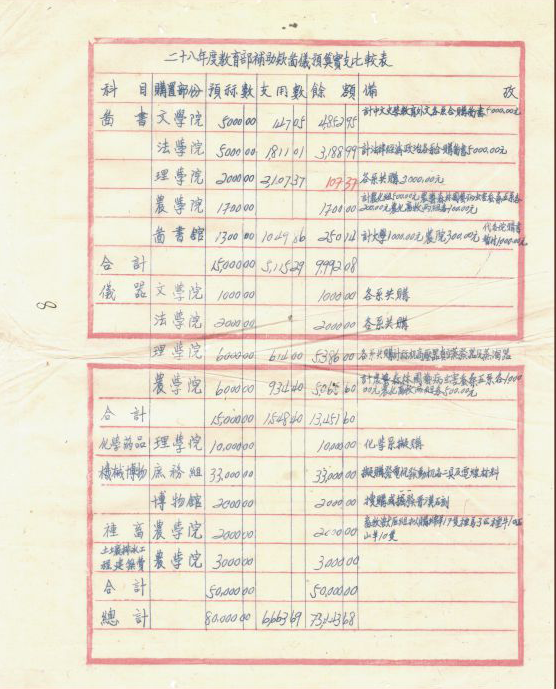 二十八年度教育部補助款圖儀預算實支比較表
科目 購置部份 預祘數 支用數 餘額 備攷
圖書 文學院 5000 00 147 05 4,852 95 計中文史學教育外文各系合購圖書5000.00元
法學院 5000 00 1811 01 3,188 99 計法律經濟政治各系合購圖書5000.00元
理學院 2000 00 2,107 37 107 37 各系共購2000.00元
農學院 1700 00 1700 00
圖書館 1300 00 1049 86 250 14 計大學1000.00元農院300.00元
合計 15,000 00 5,115 29 9,992 08
儀器 文學院 1000 00 1000 00 各系共購
法學院 2000 00 2000 00 各系共購
理學院 6000 00 614 00 5386 00
農學院 6000 00 934 40 5,065 60
合計 15,000 00 1548 40 13,451 60
化學药品 理學院 10,000 00 10,000 00 化學系擬購
機械博物 庶務組 33,000 00 33,000 00
博物館 2000 00 2000 00
種畜 農學院 2000 00 2000 00
農學院 3000 00 3000 00
合計 50,000 00 50,000 00
總計 80,000 00 6,663 69 73,443 68
8